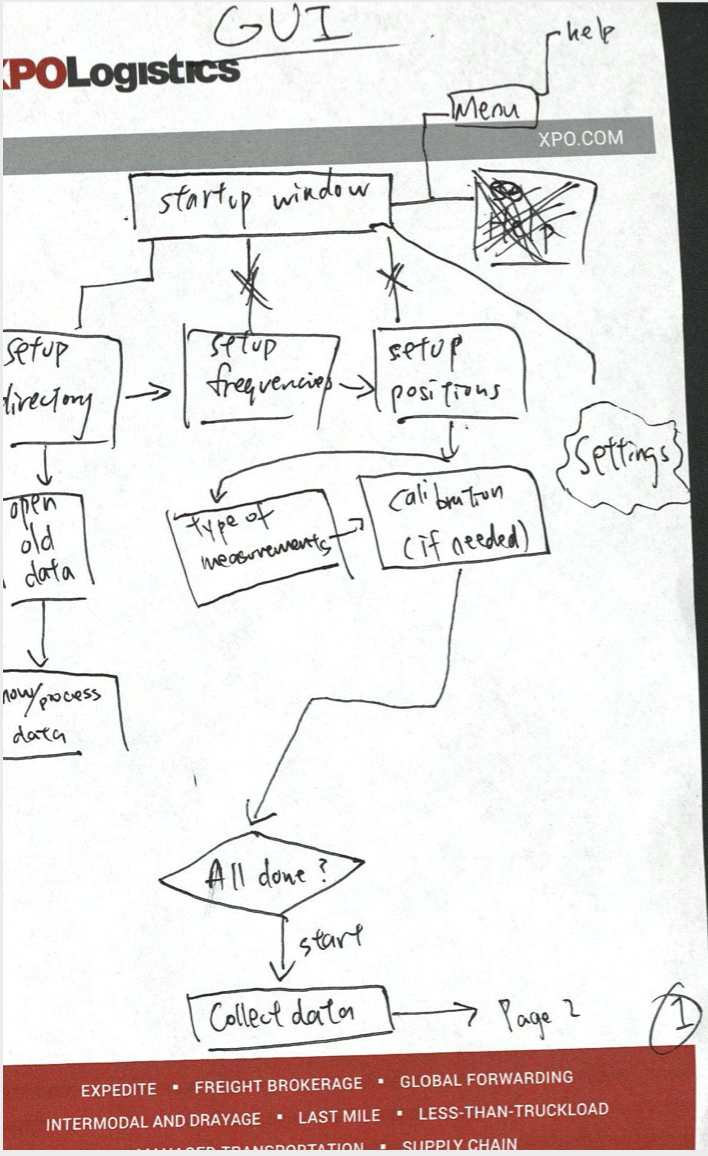 GUI
XPOLogistics
help
Menu
XPO.COM
startup window
setup
directory
setup
frequencies
setup
positions
settings
open
old
data
type of
measurements
calibration
(if needed)
process
data
All done?
start
Collect data
Page 2
1
EXPEDITE ▪ FREIGHT BROKERAGE ▪ GLOBAL FORWARDING
INTERMODAL AND DRAYAGE ▪ LAST MILE ▪ LESS-THAN-TRUCKLOAD
MANAGED TRANSPORTATION ▪ SUPPLY CHAIN